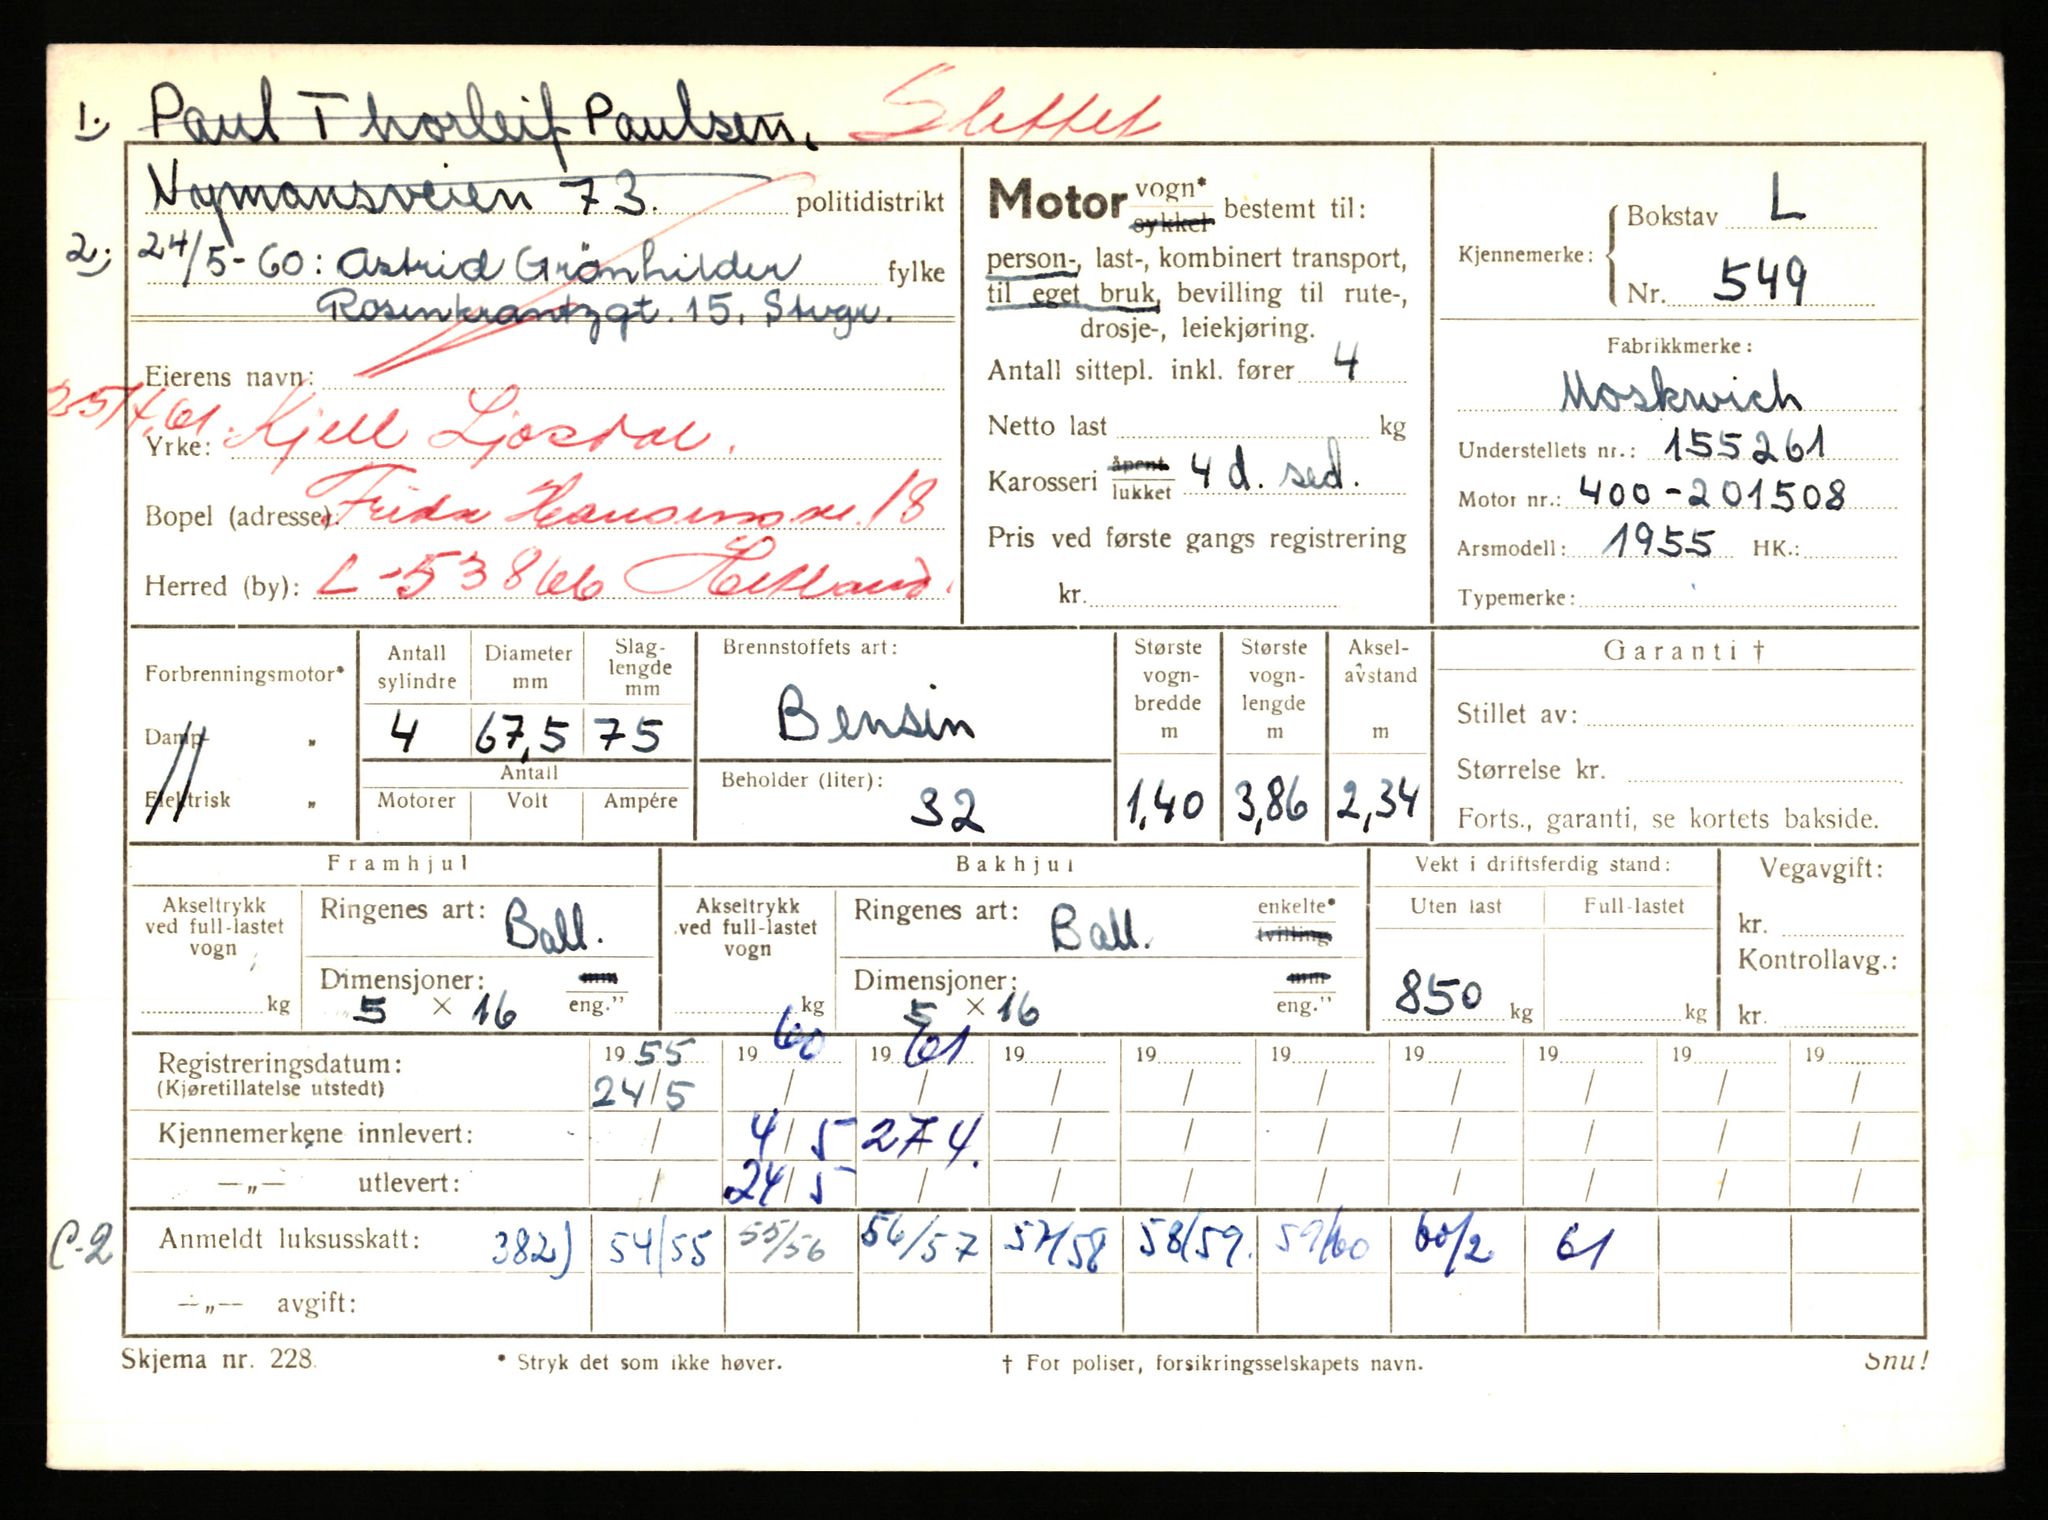 1. Paul Thorleif Paulsen. Slettet
Nymansveien 73. politidistrikt
2. 24/5-60: Astrid Grönhilder fylke
Rosenkrantzgt. 15, Stvgr.
Eierens navn:
25/4.61. Kjell Ljosdal.
Yrke:
Bopel (adresse): Frida Hansensvei 18
Herred (by): L-53866 Hetland.
Motor vogn* sykkel bestemt til:
person-, last-, kombinert transport,
til eget bruk, bevilling til rute-,
drosje-, leiekjøring.
Antall sittepl. inkl. fører 4
Netto last kg
Karosseri åpent lukket 4 d. sed.
Pris ved første gangs registrering
kr.
Kjennemerke: Bokstav L
Nr. 549
Fabrikkmerke:
Moskwich
Understellets nr.: 155261
Motor nr.: 400-201508
Arsmodell: 1955 HK.:
Typemerke:
Forbrenningsmotor*
Damp- „
Elektrisk „
Antall sylindre 4
Diameter mm 67,5
Slag-lengde mm 75
Antall
Motorer Volt Ampére
Brennstoffets art:
Bensin
Beholder (liter):
32
Største vogn-bredde m 1,40
Største vogn-lengde m 3,86
Aksel-avstand m 2,34
Garanti †
Stillet av:
Størrelse kr.
Forts., garanti, se kortets bakside.
Framhjul
Akseltrykk ved full-lastet vogn
kg
Ringenes art: Ball.
Dimensjoner: mm
5 × 16 eng."
Bakhjul
Akseltrykk ved full-lastet vogn
kg
Ringenes art: Ball. enkelte* tvilling
Dimensjoner: mm
5 × 16 eng."
Vekt i driftsferdig stand:
Uten last Full-lastet
850 kg kg
Vegavgift:
kr.
Kontrollavg.:
kr.
Registreringsdatum: 1955 1960 1961 19 19 19 19 19 19 19
(Kjøretillatelse utstedt) 24/5 / / / / / / / / /
Kjennemerkene innlevert: / 4/5 27 4. / / / / / / /
—„— utlevert: / 24/5 / / / / / / / /
C-2 Anmeldt luksusskatt: 382) 54/55 55/56 56/57 57/58 58/59. 59/60 60/2 61
—„— avgift:
Skjema nr. 228. * Stryk det som ikke høver. † For poliser, forsikringsselskapets navn. Snu!